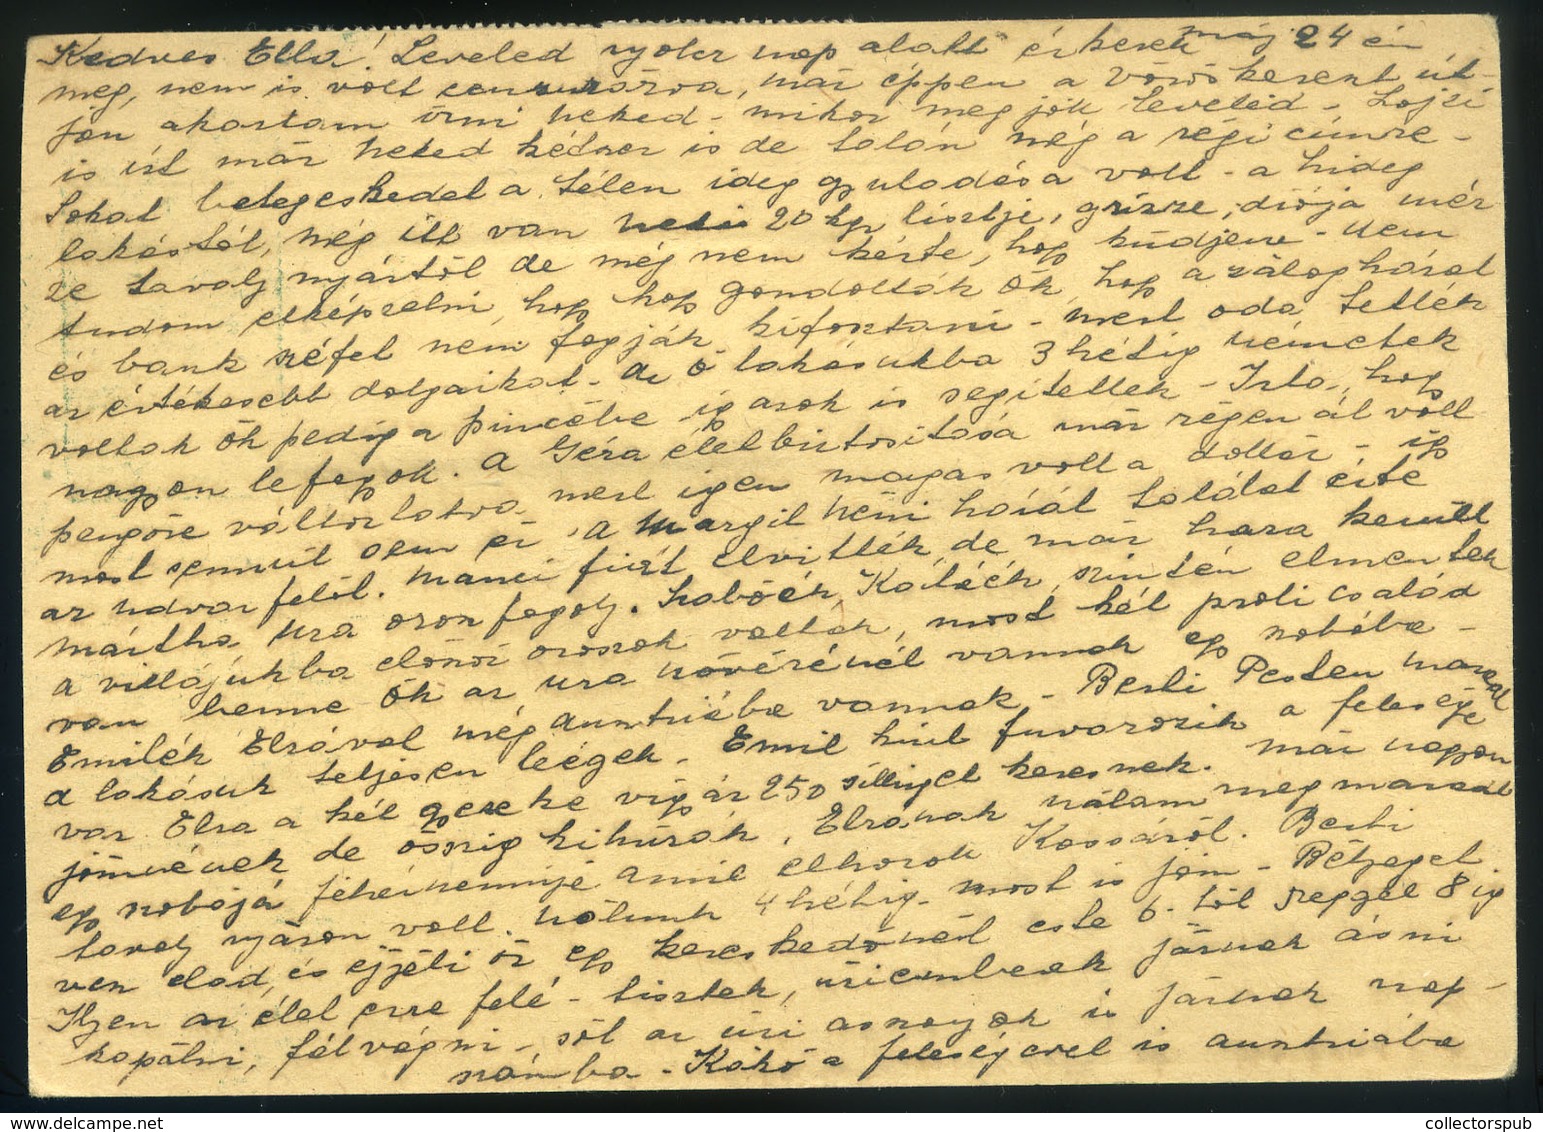 Kedves Ella! Leveled nyolc nap alatt érkezett máj 24 én
meg, nem is volt cenzurázva, már éppen a vöröskereszt út-
ján akartam írni neked - mikor meg jött leveled - Lojzi
is írt már neked kétszer is de talán még a régi címre -
Sokat betegeskedet a télen ideg gyuladása volt - a hideg
lakástól, még itt van neki 20 kg lisztje, grízze, diója mér
ze tavaly nyártól de még nem kérte, hogy küdjem - Nem
tudom elképzelni, hogy hogy gondolták ők hogy a záloghazat
és bank széfet nem fogják kifosztani - mert oda tették
az értékesebb dolgaikat - Az ő lakásukba 3 hétig németek
voltak ők pedig a pincébe igazok is segítettek - Irta, hogy
nagyon lefogyott. A Géza életbiztosítása már régen át volt
pengőre változtatva mert igen magas volt a dollár - így
most semmit sem ér, a Margit néni házát találat érte
az udvar felöl. Manci fiát elvitték, de már haza került
Mártha ura orosz fogoly. Szabóék, Katiék szintén elmentek
a villájukba előszőr oroszok voltak, most két proli család
van benne ők az ura nővérénél vannak egy szobába -
Emilék Elzával még auntriába vannak - Berti Pesten maradt
a lakásuk teljesen leégett - Emil hirt fuvarozik a felesége
var Elza a két gyereke vigyáz 250 sillinget keresnek. Már nagyon
jönnének de összeg kihúzák, Elzának nálam meg maradt
egy szobája fehérnemüje amit elhozott Kassáról. Berti
tavaly nyáron volt nálunk 4 hétig - most is jön - Bélyeget
ven elad, és éjjeli őr egy kereskedőnél este 6-tól reggel 8 ig
Ilyen az élet erre felé - tisztek, úriemberek járnak ásni
kapálni, fát vágni - sőt az úri asszonyok is járnak nap-
számba - Kókó a feleségével is auntriába
collectorspub.com